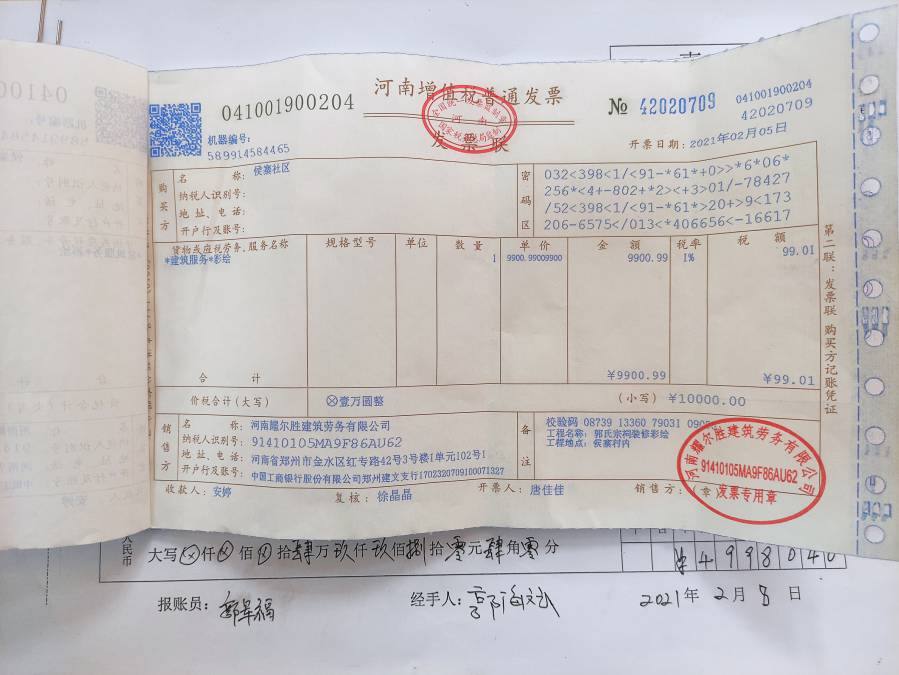 041001900204
河南增值税普通发票
发票联
№ 42020709
041001900204
42020709
机器编号:
589914584465
开票日期: 2021年02月05日
购买方
名 称: 侯寨社区
纳税人识别号:
地 址、电 话:
开户行及账号:
密码区
032<398<1/<91-*61*+0>>*6*06*
256*<4+-802+*2><+3>01/-78427
/52<398<1/<91-*61*>20+>9<173
206-6575</013<*406656<-16617
货物或应税劳务、服务名称 规格型号 单位 数 量 单 价 金 额 税率 税 额
*建筑服务*彩绘 1 9900.99009900 9900.99 1% 99.01
合 计 ¥9900.99 ¥99.01
价税合计(大写) ⊗壹万圆整 (小写) ¥10000.00
销售方
名 称: 河南耀尔胜建筑劳务有限公司
纳税人识别号: 91410105MA9F86AU62
地 址、电 话: 河南省郑州市金水区红专路42号3号楼1单元102号1
开户行及账号: 中国工商银行股份有限公司郑州建文支行1702320709100071327
备注
校验码 08739 13360 79031
工程名称: 郭氏宗祠装修彩绘
工程地点: 侯寨村内
河南耀尔胜建筑劳务有限公司
91410105MA9F86AU62
发票专用章
收款人: 安婷 复核: 徐晶晶 开票人: 唐佳佳 销售方:(章)
第二联:发票联 购买方记账凭证
人民币
大写 仟 佰 拾肆万玖仟玖佰捌拾零元肆角零分 4998040
报账员: 经手人: 2021年2月8日